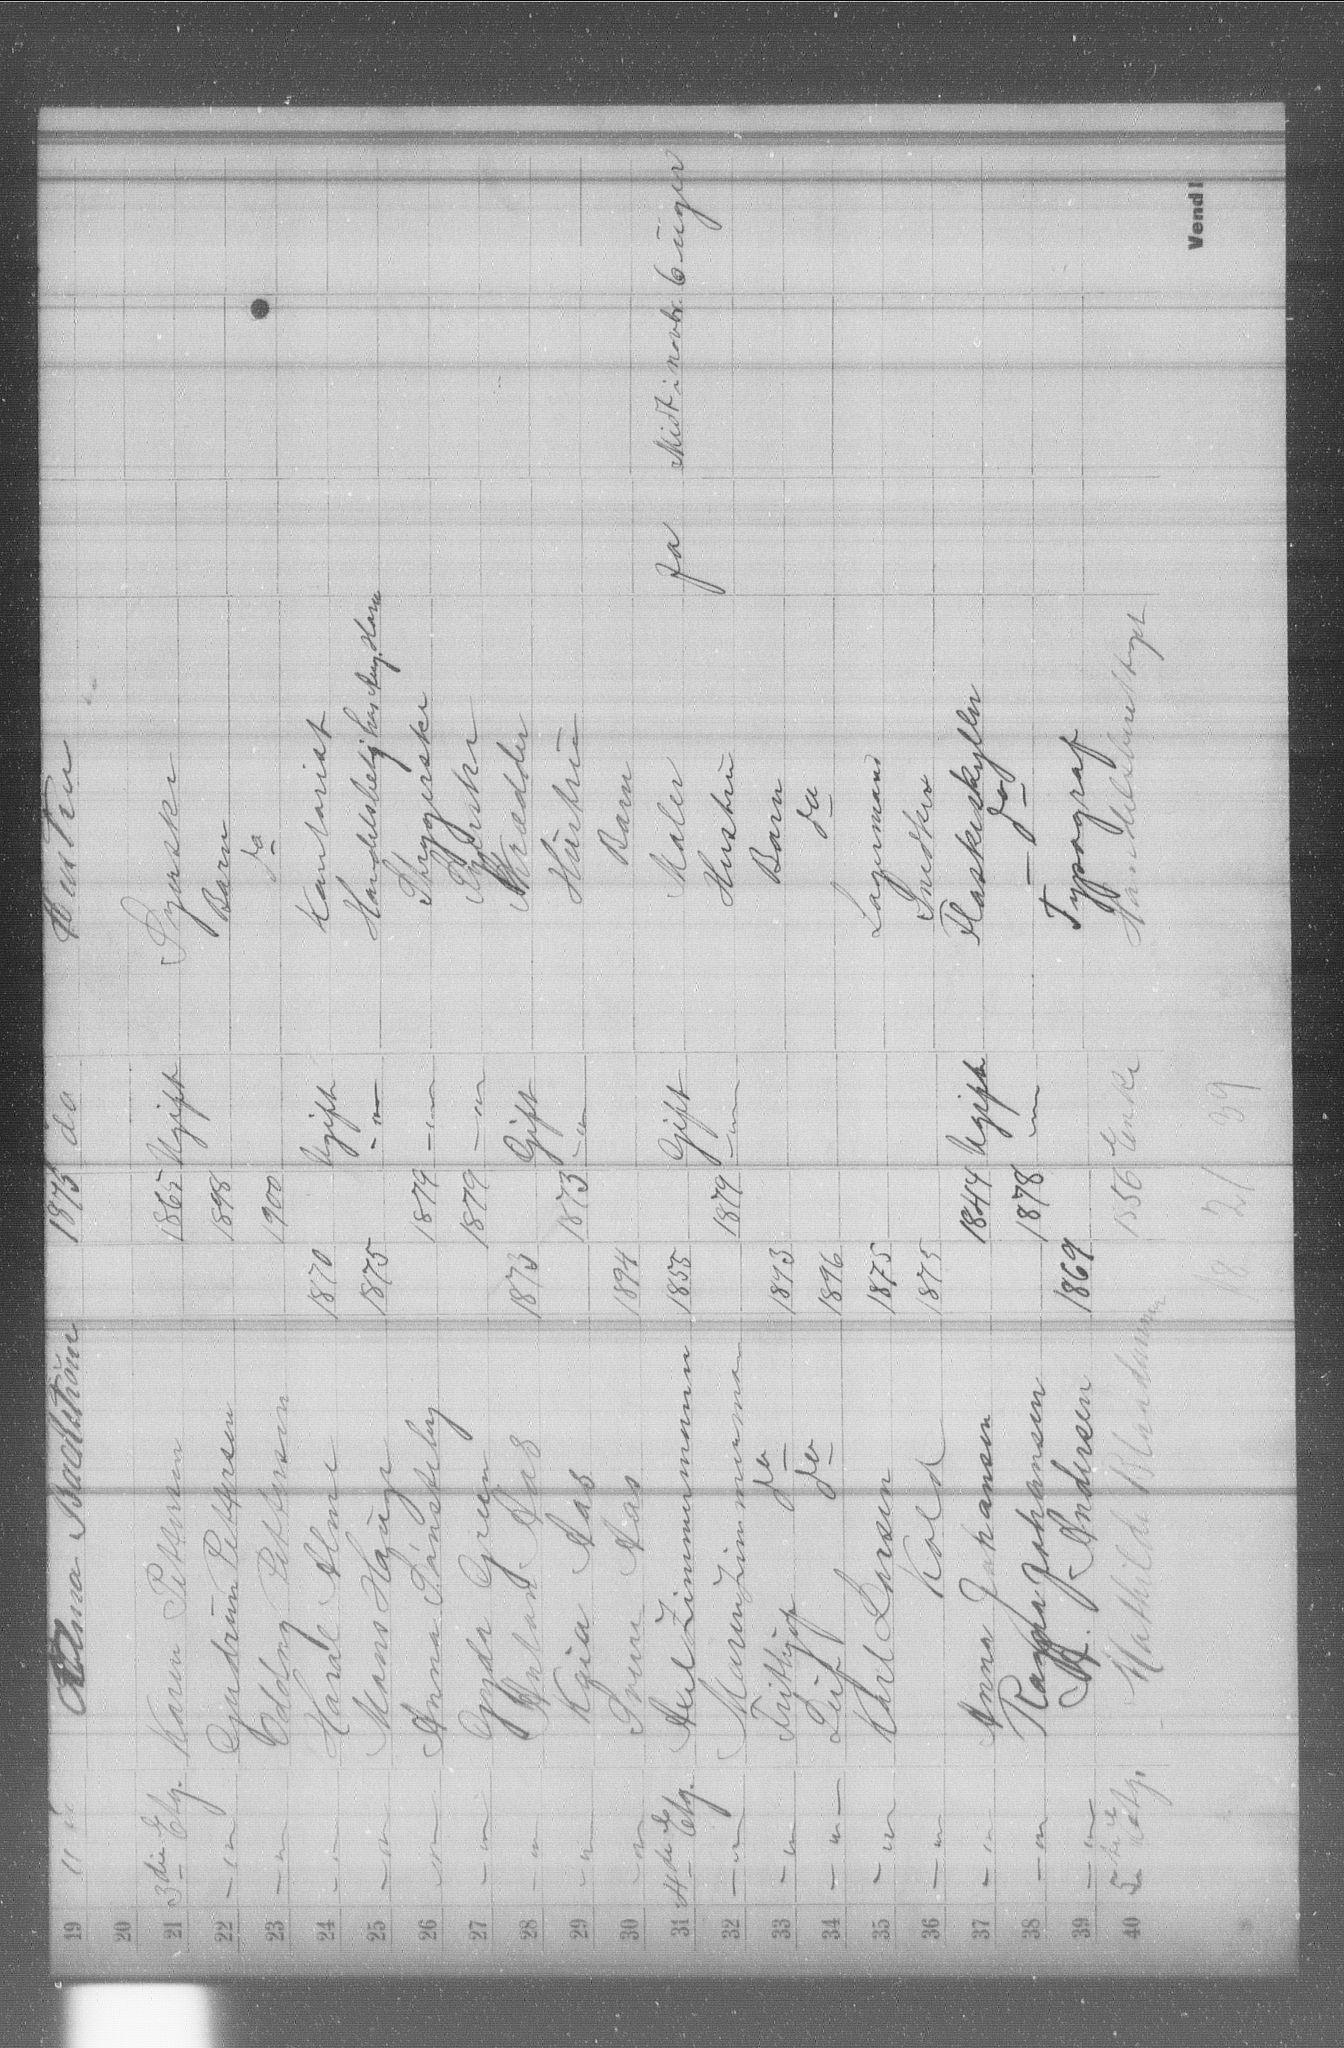 19 " " Alma Backström 1875 do Hustru
20
21 3die Etg. Karen Pettersen 1865 Ugift Syerske
22 — " — Gudrun Pettersen 1898 Barn
23 — " — Oddny Pettersen 1900 do
24 — " — Harald Holme 1870 Ugift Kontorist
25 — " — Mons Hauge 1875 — " — Handelsbetj hos Aug. Horn
26 — " — Anna Tønsberg 1879 — " — Strygerske
27 — " — Gyda Green 1879 — " — Syerske
28 — " — Anton Aas 1873 Gift Skrædder
29 — " — Kaia Aas 1873 — " — Hustru
30 — " — Aas 1894 Barn
31 4de Etg. Axel Zimmermann 1855 Gift Maler Ja Midt i Novbr. 6 uger
32 — " — Marie Zimmermann 1879 — " — Hustru
33 — " — Frithjof do 1893 Barn
34 — " — Leif do 1896 do
35 — " — Karl Larsen 1875 Lagermand
36 — " — Kold 1875 Snedker
37 — " — Anna Johansen 1844 Ugift Flaskeskyller
38 — " — Ragna Johansen 1878 — " — — do —
39 — " — A. Andersen 1869 Typograf
40 5te Etg. Mathilde 1856 Enke
18 21 39
Vend!